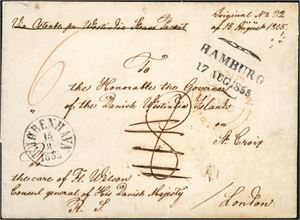 Via Ostende per Westindia Steam Packet
Original No 22
of 15 August 1855.
HAMBURG
17 AUG. 1855
To
the Honorable the Governor
of the Danish Westindia Islands
on
St Croix
KJØBENHAVN
15
8
1855
the care of Fr. Wilson
Consul general of His Danish Majesty
London